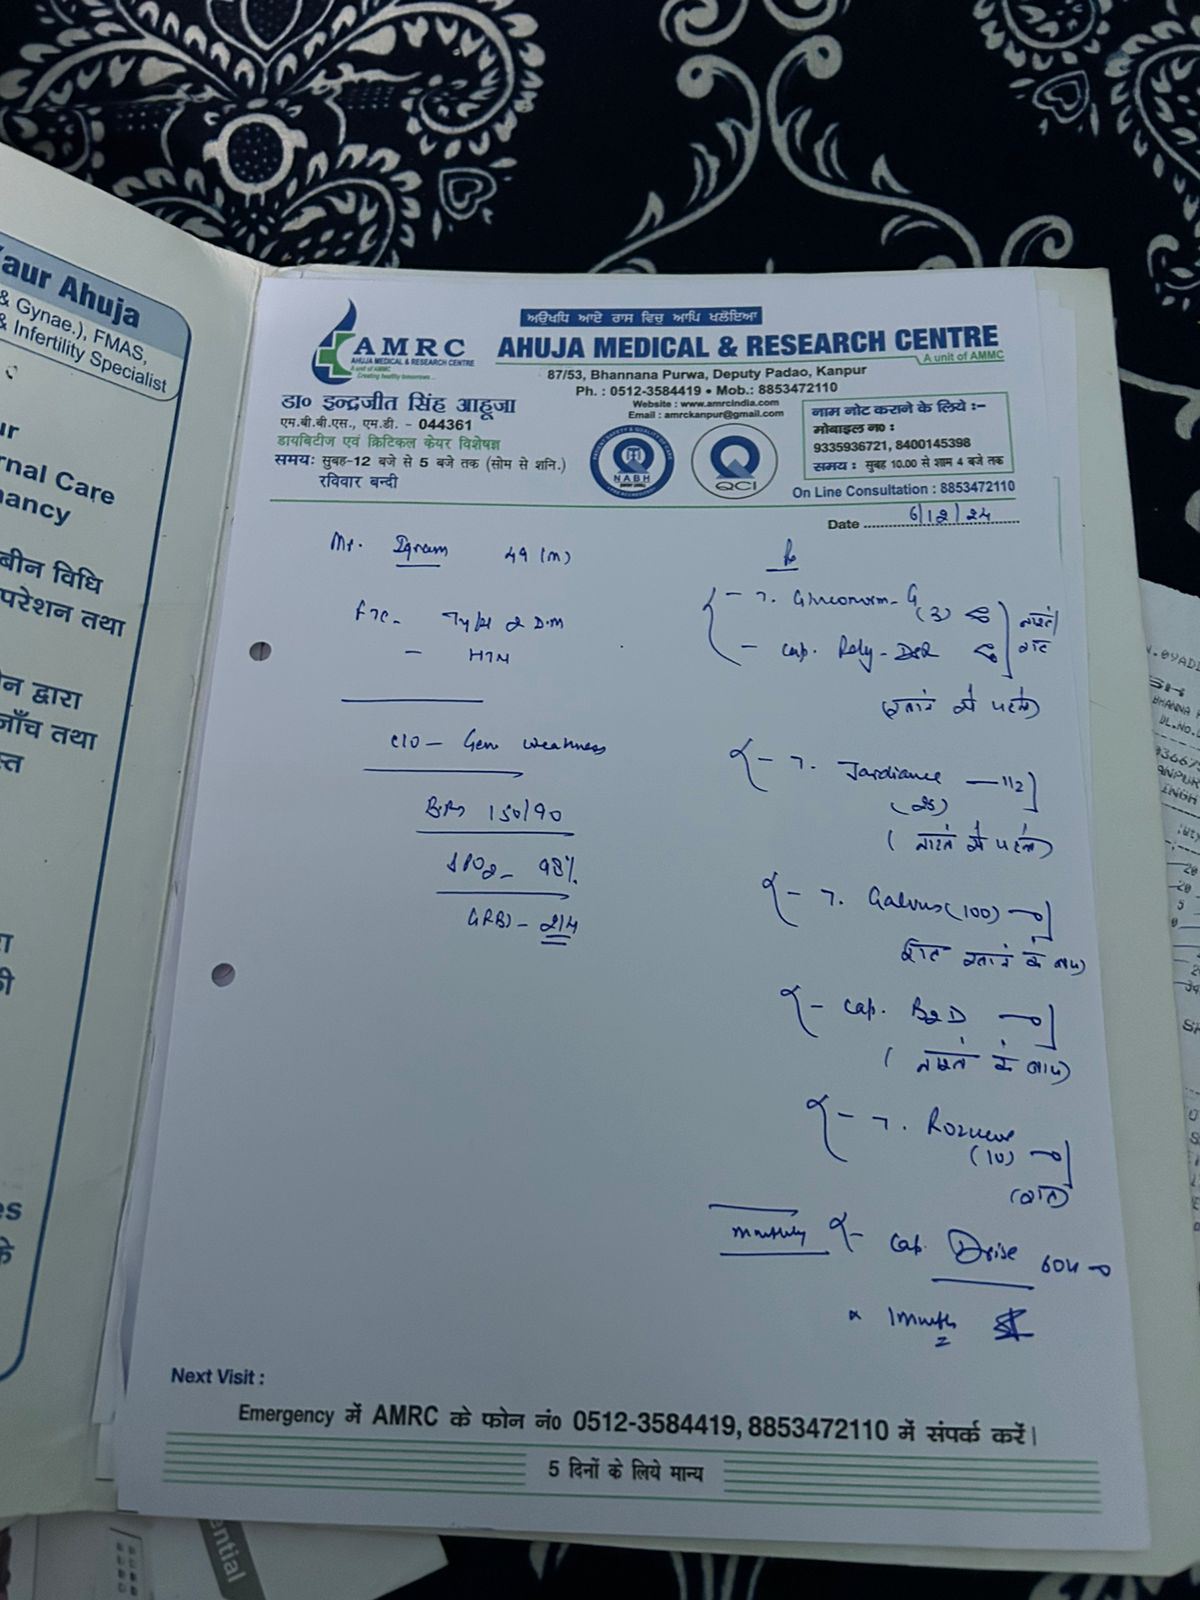 aur Ahuja
& Gynae.), FMAS,
& Infertility Specialist
ur
rnal Care
nancy
बीन विधि
परेशन तथा
न द्वारा
जाँच तथा
स्त
ਅਉਖਧਿ ਆਏ ਰਾਸ ਵਿਚੁ ਆਪਿ ਖਲੋਇਆ
AMRC
AHUJA MEDICAL & RESEARCH CENTRE
A unit of AMMC
Creating healthy tomorrows...
AHUJA MEDICAL & RESEARCH CENTRE
A unit of AMMC
87/53, Bhannana Purwa, Deputy Padao, Kanpur
Ph. : 0512-3584419 • Mob.: 8853472110
Website : www.amrcindia.com
Email : amrckanpur@gmail.com
डा० इन्द्रजीत सिंह आहूजा
एम.बी.बी.एस., एम.डी. - 044361
डायबिटीज एवं क्रिटिकल केयर विशेषज्ञ
समयः सुबह-12 बजे से 5 बजे तक (सोम से शनि.)
रविवार बन्दी
NABH
QCI
नाम नोट कराने के लिये :-
मोबाइल न० :
9335936721, 8400145398
समय : सुबह 10.00 से शाम 4 बजे तक
On Line Consultation : 8853472110
Date 6/12/24
Mr. 49 (m)
Type 2 D.M
- HTN
c/o - Gen weakness
150/90
SPO2 - 98%
GRBS - 214
Rx
- T. Gluconorm-G (3)
- Cap. Rely-DSR
(खाने से पहले)
- T. Jardiance - 1/2
(25)
(नाश्ते से पहले)
- T. Galvus (100)
रात खाने के बाद
- Cap. B2D
(नाश्ते के बाद)
- T. Rozucor
(10)
(रात)
Monthly - Cap. Drise 60K
x 1 month
Next Visit :
Emergency में AMRC के फोन नं० 0512-3584419, 8853472110 में संपर्क करें।
5 दिनों के लिये मान्य
ential